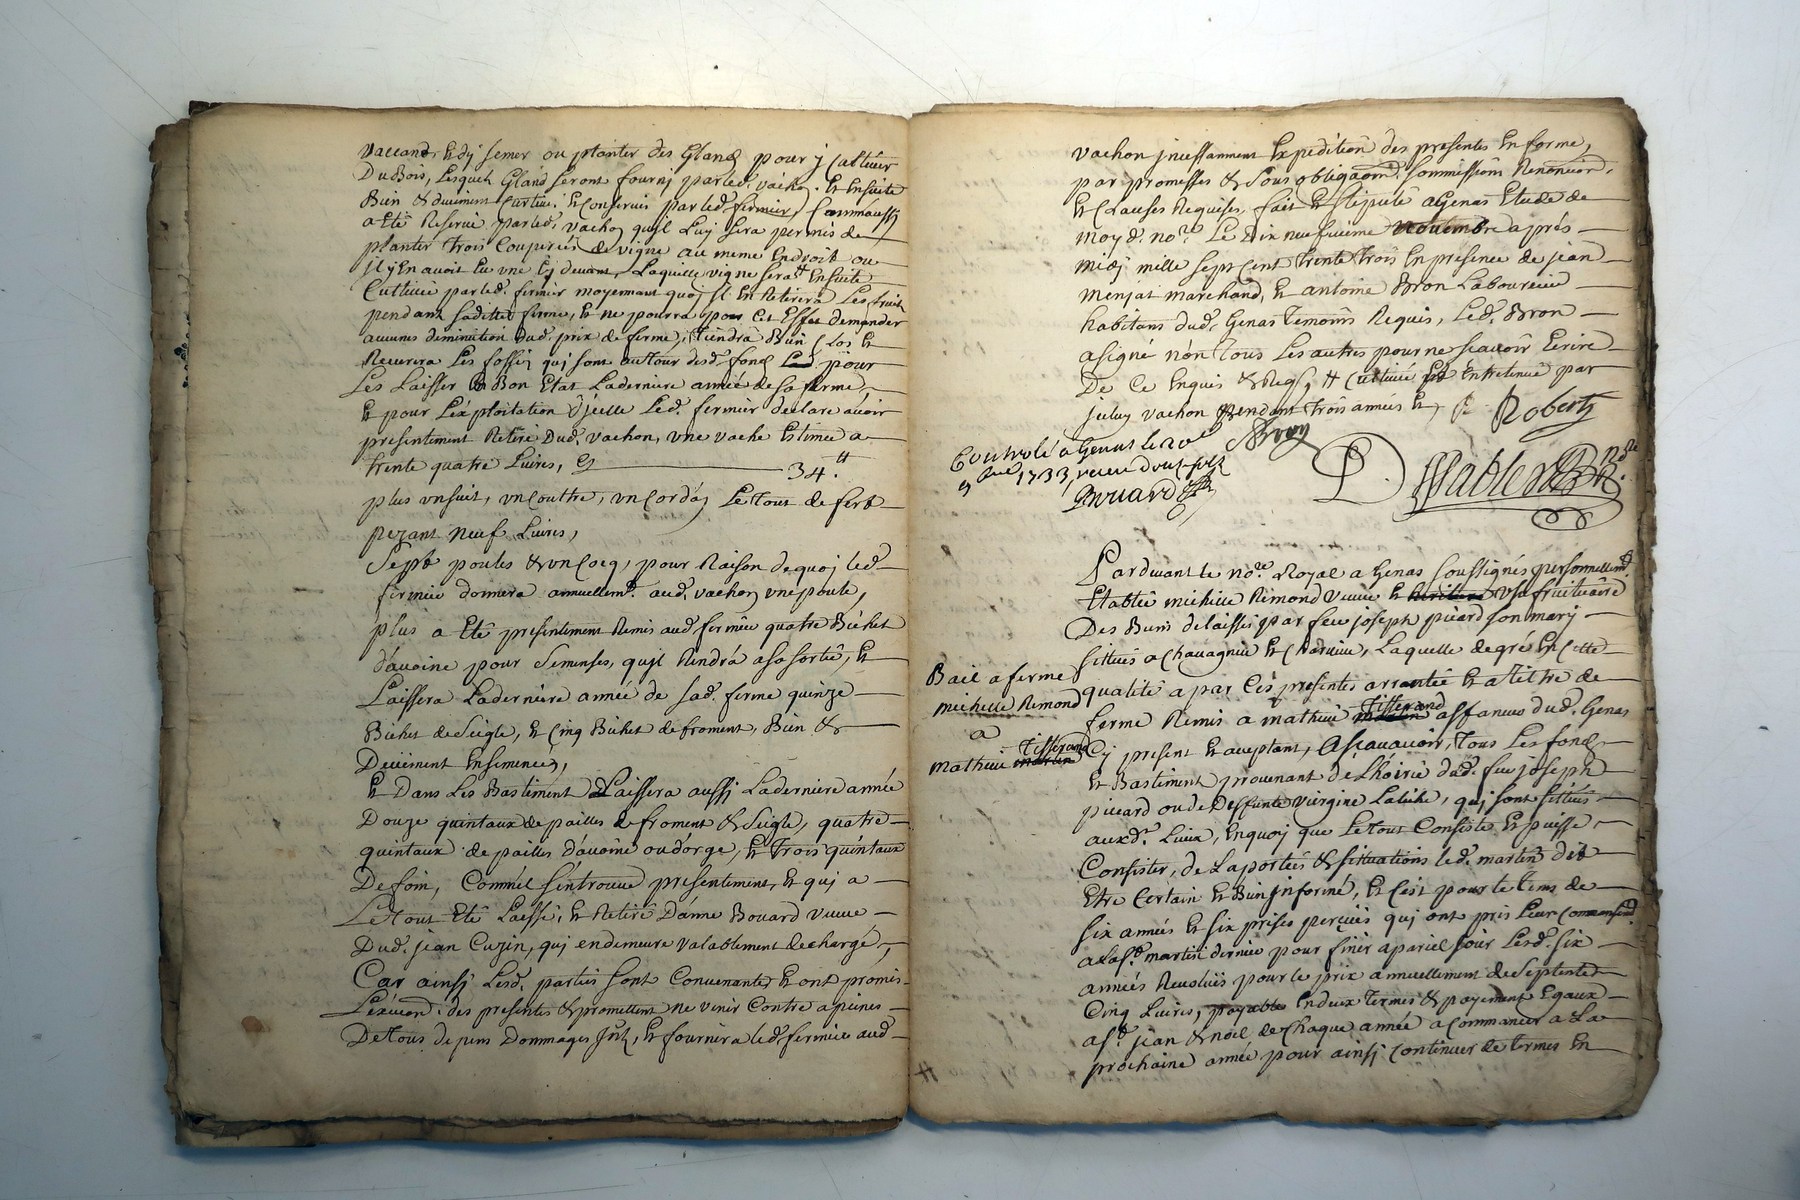 vaccand, Et dy semer ou planter des Gland pour y Cultiver
Du Bois, Lesquels Gland seront fourny par led. vachon. Et Ensuite
Bien & duement Cultive. Et Conservés par led. fermier, Comm'aussy
a Eté Reservé par led. vachon qu'il Luy sera permis de
planter trois Couperiés de vigne au meme Endroit ou
jl y En avoit Eu vne Cy devant, Laquelle vigne sera # Ensuite
Cultiveé par led. fermier moyennant quoy jl En Retirera Les fruits
pendant sadite ferme, Et ne pourra pour Cet Effet demander
aucune diminution dud. prix de ferme, Tiendra Bien Clos Et
Recurera Les fossez qui sont autour desd. fond pour
Les Laisser En Bon Etat La derniere anneé de sa ferme,
Et pour L'exploitation d'jcelle Led. fermier declare avoir
presentement Retiré Dud. vachon, vne vache Estimeé a
trente quatre Livres, Cy 34.#
plus vn, vn Couttre, vn Le Tout de fert
pezant Neuf Livres,
Sept poules & vn Cocq, pour Raison de quoy led.
fermier donnera annuellemt. aud. vachon vne poule,
plus a Eté presentement Remis aud. fermier quatre Bichet
d'avoine pour Semenses, qu'jl Rendra a sa sortië, Et
Laissera La derniere anneé de sad. ferme quinze
Bichet de seigle, Et Cinq Bichet de froment, Bien &
Deüement Ensemencés,
Et Dans Les Bastiment Laissera aussy La derniere anneé
Douze quintaux de pailles de froment & seigle, quatre
quintaux de pailles d'avoine ou d'orge, Et trois quintaux
De foin, Comm'el s'entrouve presentement, Et qui a
Le Tout Eté Laissé, Et Retiré D'anne Bouard veuve
Dud. jean Cuzin, qui en demeure valablement dechargé,
Car ainsy Lesd. parties sont Convenantes Et ont promis
L'exécuon. des presentes & promettent ne venir Contre a peines
De Tous depens Dommages, Et fournira led. fermier aud.
vachon jncessamment Expedition des presentes En forme,
par promesses & sous obligaon. sommissions Renonciaon.
Et Clauses Requises, fait Et stipulé a Genas Etude de
moy d. nore. Le Dix neufvieme novembre aprés
midy mille sept Cent trente trois En presence de jean
menjat marchand, Et antoine Bron Laboureur
habitans dud. Genas Temoins Requis, Led. Bron
a signé non Tous Les autres pour ne scavoir Ecrire
De Ce Enquis & Requis # Cultiveé Et Entretenue par
jceluy vachon pendant trois anneés Et,
Roberty
ABron
Controlé a Genas le 20e
9bre 1733, receu douze sols
Bouard
Sablier nore
Par devant le nore. Royal a Genas soussignés personnellemt.
Etabliё michelle Remond veuve Et vsufruituaire
Des Biens delaissés par feu joseph picard son mary
sittués a Chavagnieu Et Charvieu, Laquelle de gré En Cette
qualité a par Ces presentes arrantée Et a Titre de
ferme Remis a mathieu Tisserand affaneur dud. Genas
Cy present Et aceptant, Ascavavoir, Tous Les fond
Et Bastiment provenant de L'hoirie dud. feu joseph
picard ou de Deffunte virgine, qui sont sittués
auxd. Lieux, En quoy que Le tout Consiste Et puisse
Consister, de La portées & sittuations led. martin dit
Etre Certain Et Bien jnformé, Et C'est pour le Tems de
six années Et six prises perçuës qui ont pris Leur Commensemt.
a La st. martin derniere pour finir a pariel jour Lesd. six
anneés Revoluës pour le prix annuellement de Septente
Cinq Livres, payable En deux termes & payement Egaux
a st. jean & noël de Chaque année a Commancer a La
prochaine année pour ainsy Continuer de termes En
Bail a ferme
michelle Remond
a
mathieu Tisserand martin